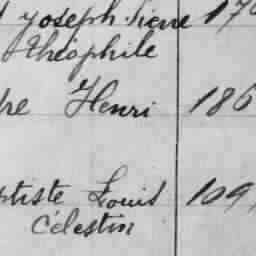 Joseph Pierre 170
Théophile
re Henri 186
ptiste Louis 109
Célestin